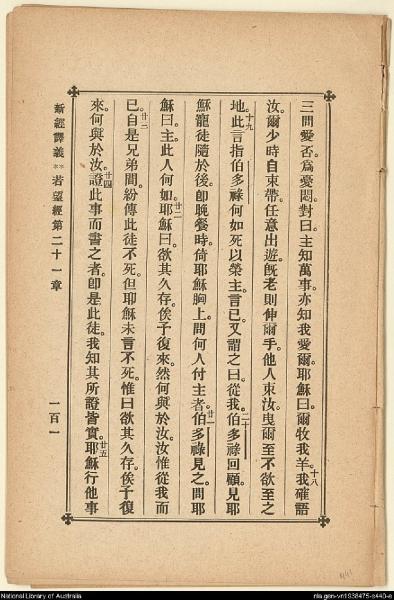 三問愛否。爲憂悶。對曰。主知萬事。亦知我愛爾。耶穌曰。爾牧我羊。十八我確語
汝。爾少時自束帶。任意出遊。旣老則伸爾手。他人束汝。曳爾至不欲至之
地。十九此言指伯多祿何如死以榮主。言已。又謂之曰。從我。二十伯多祿回顧。見耶
穌寵徒隨於後。卽晚餐時倚耶穌胸上。問何人付主者。廿一伯多祿見之。問耶
穌曰。主。此人何如。廿二耶穌曰。欲其久存。俟予復來。然何與於汝。汝惟從我而
已。廿三自是兄弟間紛傳此徒不死。但耶穌未言不死。惟曰欲其久存。俟予復
來。何與於汝。廿四證此事而書之者。卽是此徒。我知其所證皆實。廿五耶穌行他事
新經譯義 ** 若望經第二十一章 一百一
National Library of Australia
nla.gen-vn1938475-s440-e